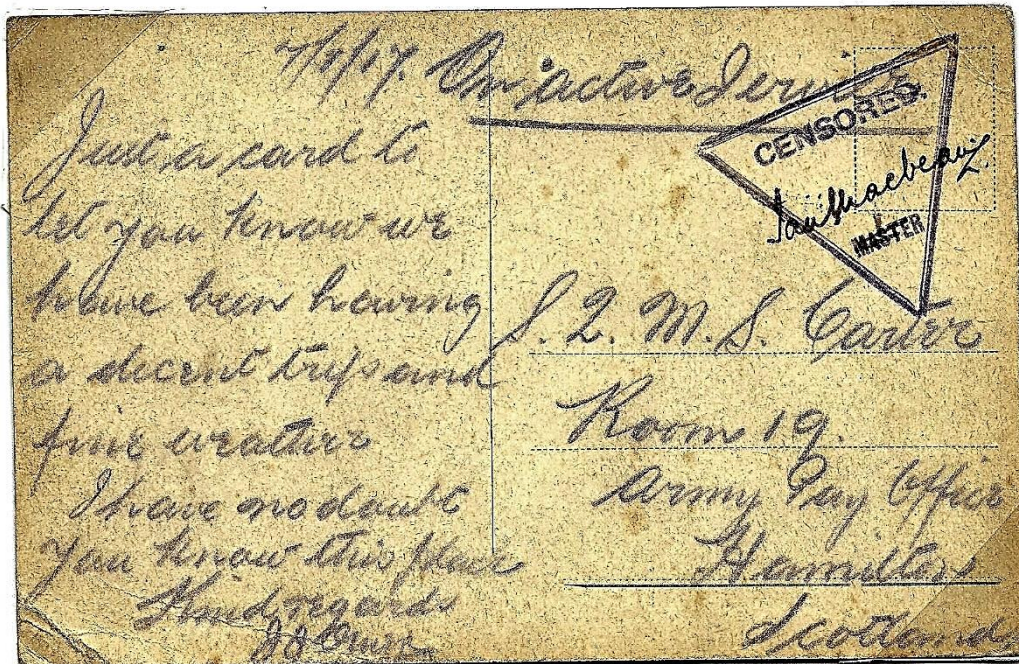 7/9/17. On active Service
Just a card to
let you know we
have been having
a decent trip and
fine weather
I have no doubt
you know this place
Kind regards
CENSORED.
MASTER
S. Q. M. S. Carter
Room 19.
Army Pay Office
Hamilton
Scotland